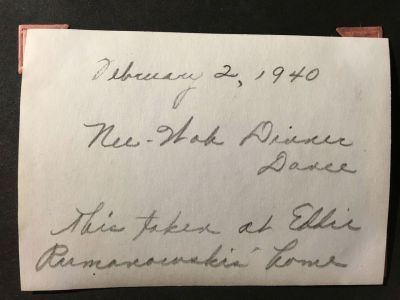 February 2, 1940
Nee-Wah Dinner
Dance
This taken at Eddie
Rumanowskis' home